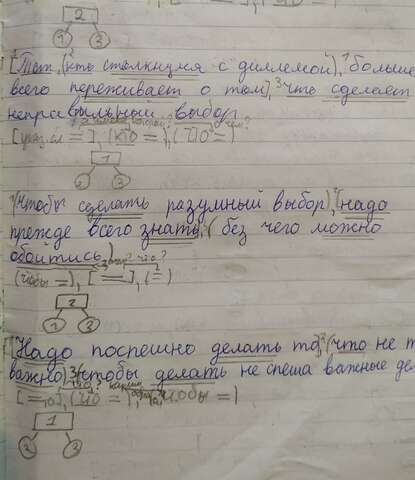 2
1 3
[Тот, (кто столкнулся с дилеммой), больше
всего переживает о том], (что сделает
неправильный выбор.
[указ. сл =], (кто =), (что =)
1
2 3
(Чтобы сделать разумный выбор), [надо
прежде всего знать], (без чего можно
обойтись)
(чтобы =), [=], (=)
2
1 3
[Надо поспешно делать то], (что не т
важно), (чтобы делать не спеша важные де
[=, то], (что =), (чтобы =)
1
2 3